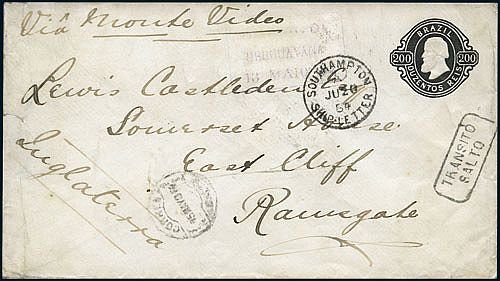 Viâ Monte Video
BRAZIL
200 200
DUZENTOS REIS
SOUTHAMPTON
JU 20
84
SHIP-LETTER
Lewis Castleden
Somerset House
East Cliff
Ramsgate
Inglaterra
TRANSITO
SALTO